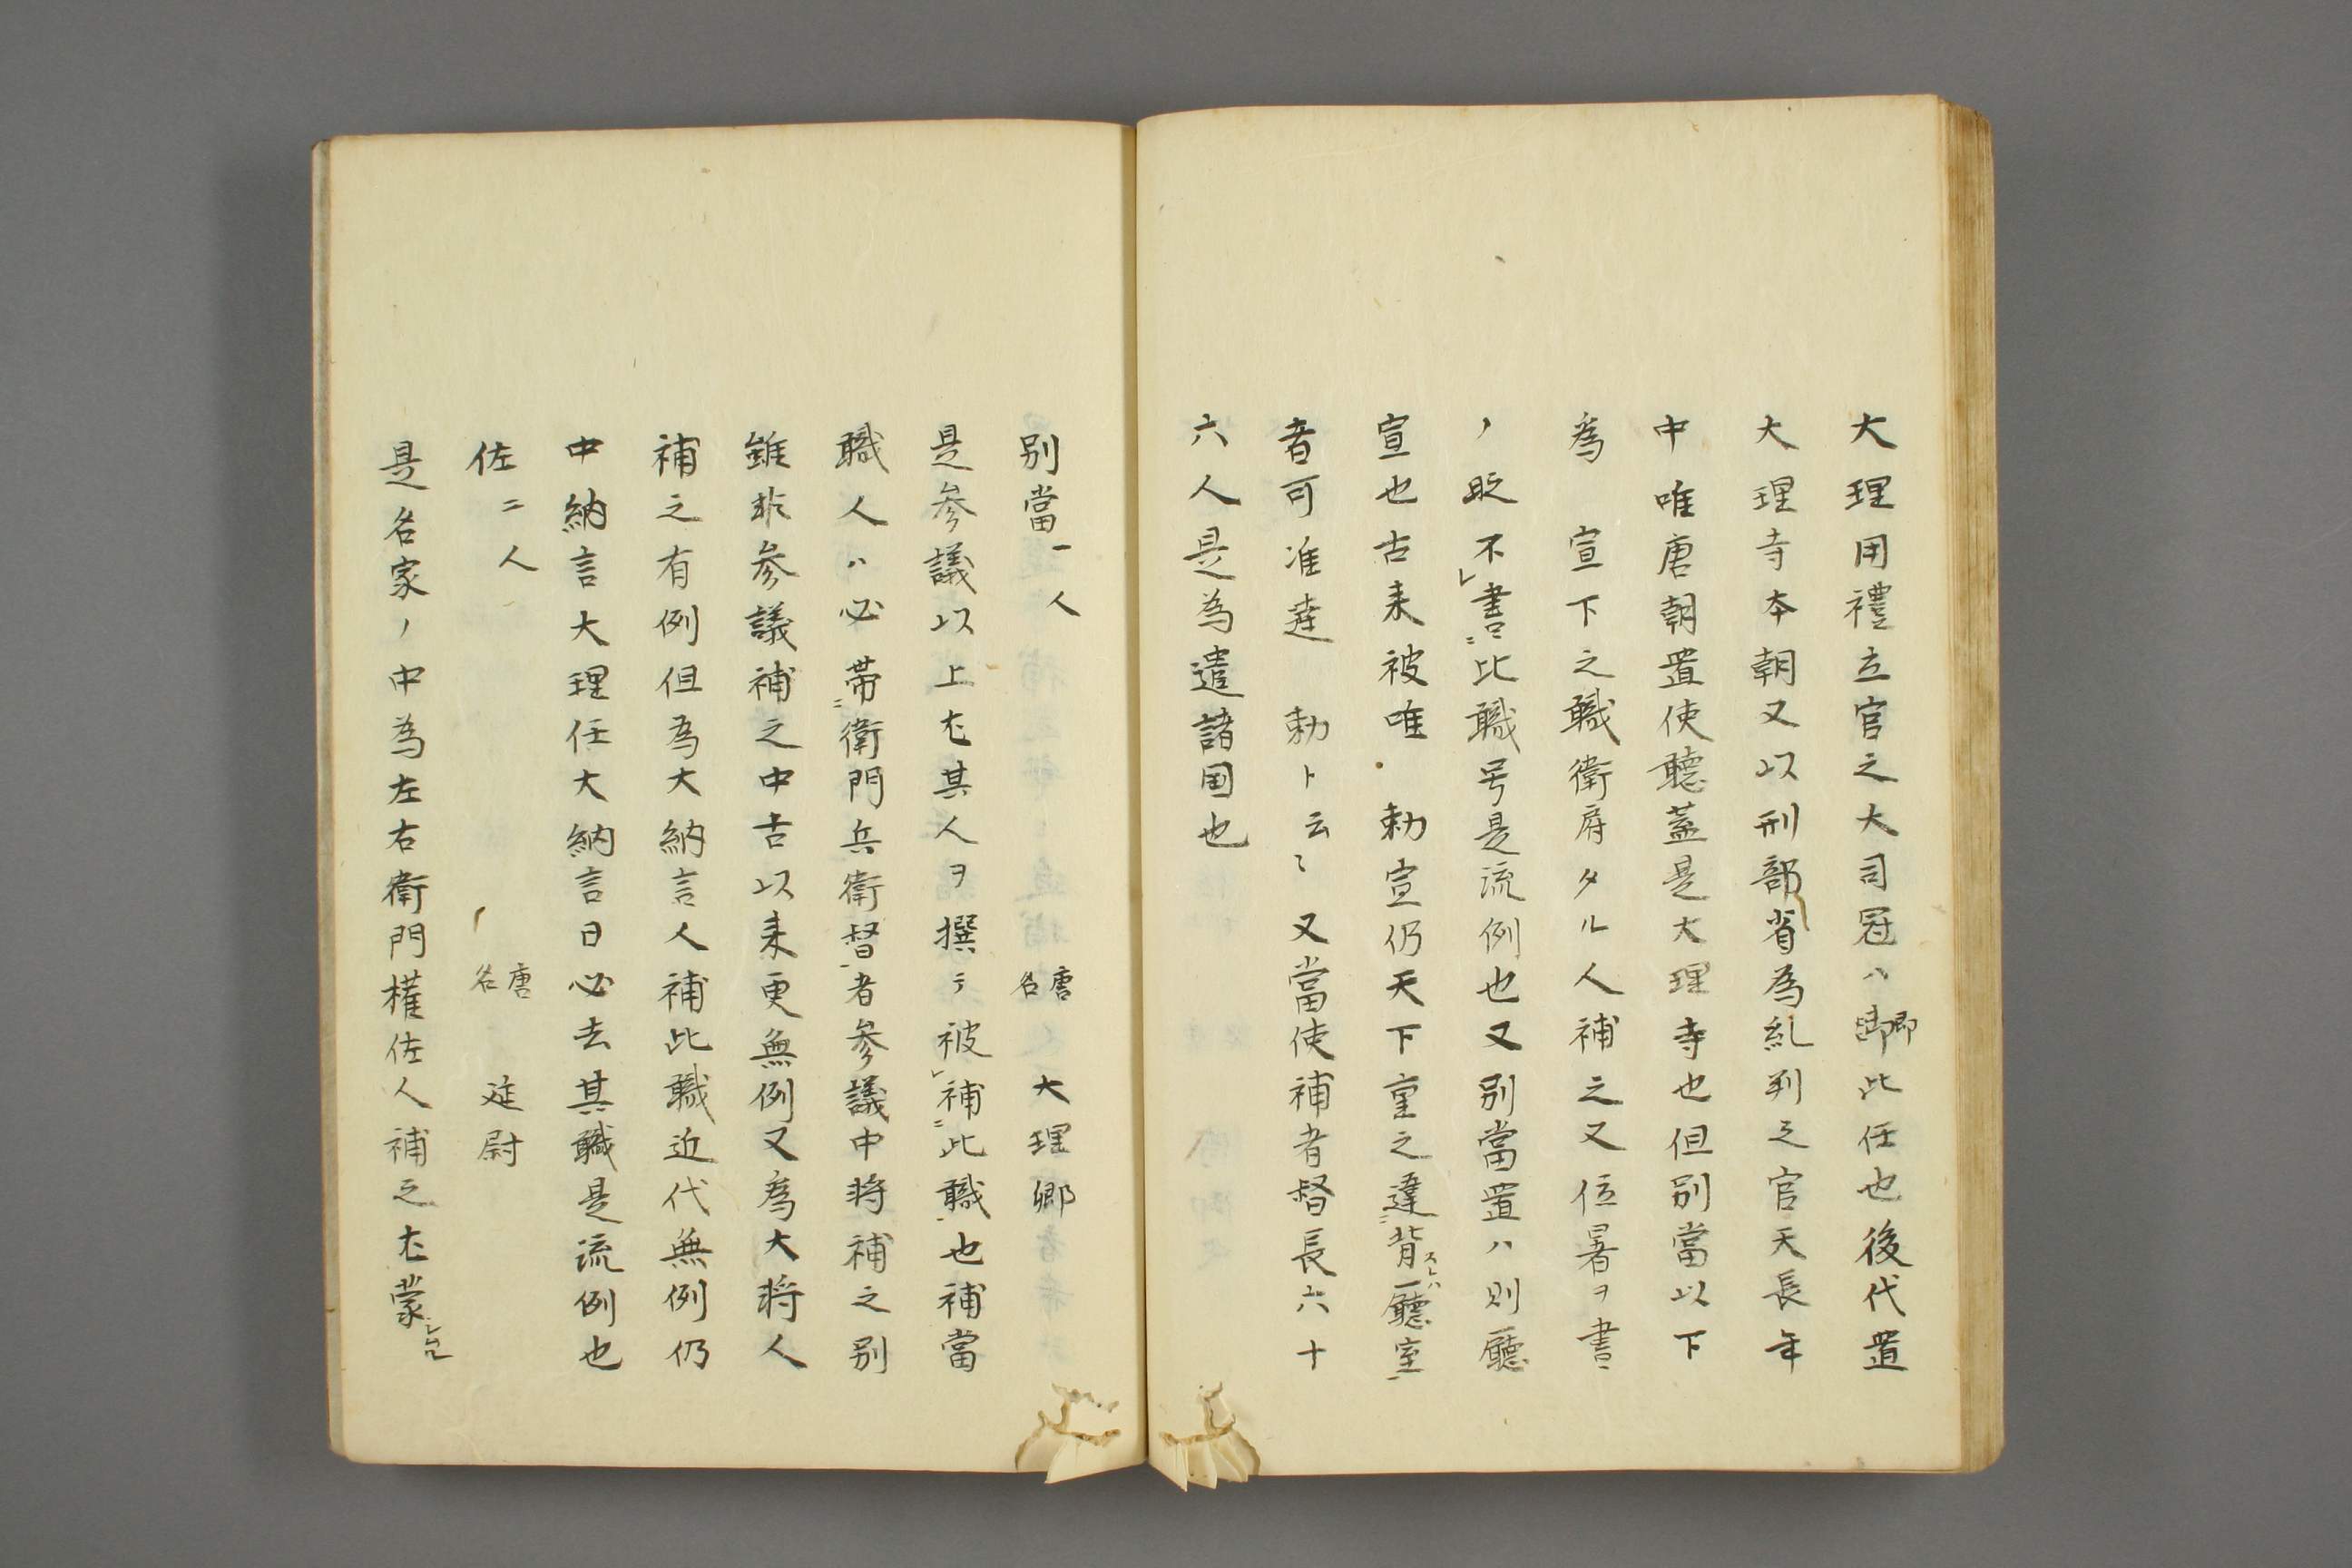 大理用禮立官之大司冦ハ即此任也後代置
大理寺本朝又以刑部省為糺判之官天長年
中唯唐朝置使聽蓋是大理寺也但別當以下
為　宣下之職衛府タル人補之又位署ヲ書
ノ貶不レ書ニ比職号是流例也又別當置ハ則廳
宣也古来被唯　勅宣仍天下重之違ニ背スレハ廳宣
者可准違　勅ト云〻又當使補者督長六十
六人是為遣諸国也
別當一人　唐名　大理卿
是参議以上尤其人ヲ撰ラ被レ補ニ此職也補當
職人ハ必帯ニ衛門兵衛督者参議中将補之別
雖非参議補之中古以来更無例又為大将人
補之有例但為大納言人補此職近代無例仍
中納言大理任大納言日必去其職是流例也
佐二人　唐名　廷尉
是名家ノ中為左右衛門權佐人補之尤蒙